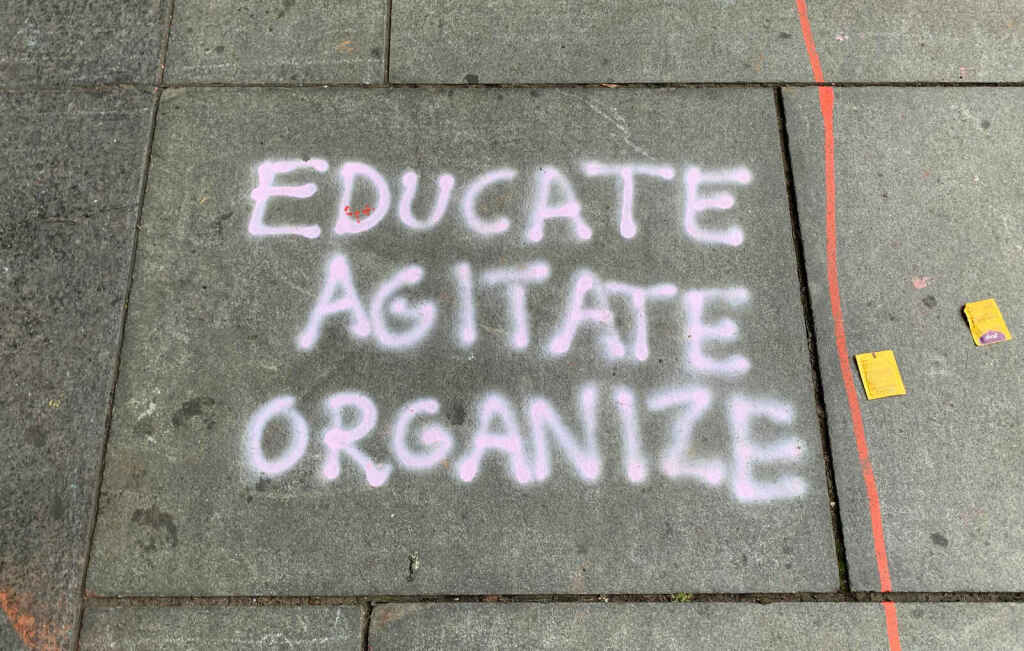 EDUCATE
AGITATE
ORGANIZE